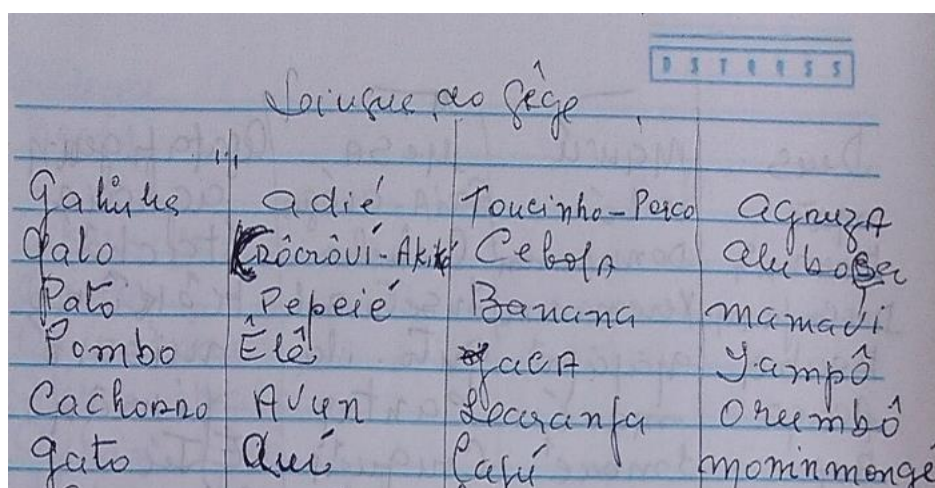 DSTRQSS
Loingue do Gêge
Galinha adié Toucinho-Porco agruzA
Galo Krôcrôví-Akikó CebolA aluboSa
Pato Pepeié Banana mamadi
Pombo Êlê JacA Yampô
Cachorro Avun Laranja Orumbô
gato Auí Cajú moninmongé